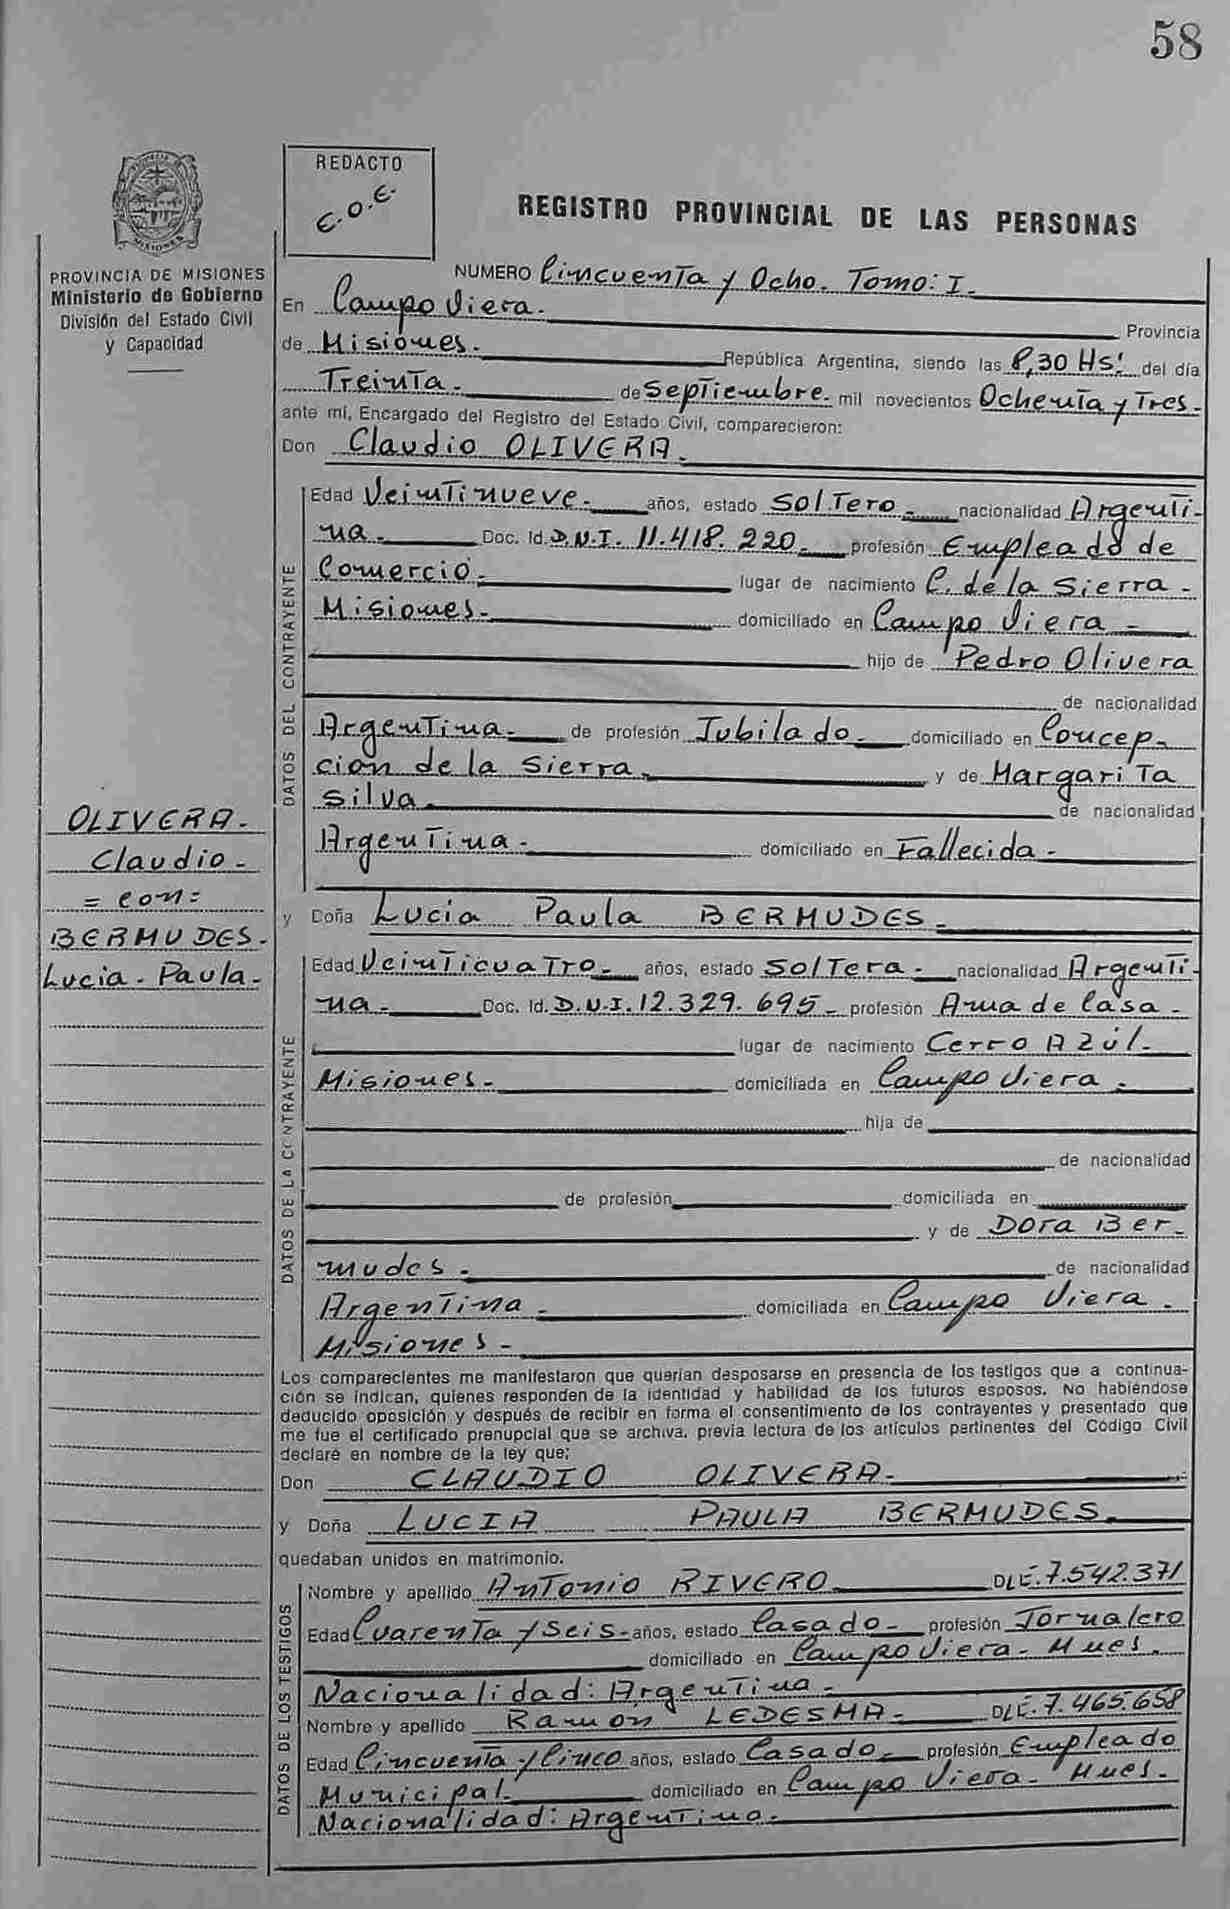 58
REDACTO
E.O.E.
REGISTRO PROVINCIAL DE LAS PERSONAS
PROVINCIA DE MISIONES
Ministerio de Gobierno
División del Estado Civil
y Capacidad
NUMERO Cincuenta y Ocho. Tomo: I.
En Campo Viera. Provincia
de Misiones. República Argentina, siendo las 8,30 Hs. del día
Treinta. de Septiembre. mil novecientos Ochenta y Tres.
ante mí, Encargado del Registro del Estado Civil, comparecieron:
Don Claudio OLIVERA.
DATOS DEL CONTRAYENTE
Edad Veintinueve. años, estado SolTero. nacionalidad Argenti-
na. Doc. Id. D.N.I. 11.418.220. profesión Empleado de
Comercio. lugar de nacimiento C. de la Sierra -
Misiones. domiciliado en Campo Viera -
hijo de Pedro Olivera
de nacionalidad
Argentina. de profesión Jubilado. domiciliado en Concep-
cion de la Sierra. y de Margarita
Silva. de nacionalidad
Argentina. domiciliado en Fallecida.
OLIVERA.
Claudio -
= con =
BERMUDES.
Lucia - Paula -
y Doña Lucia Paula BERMUDES.
DATOS DE LA CONTRAYENTE
Edad Veinticuatro. años, estado Soltera. nacionalidad Argenti-
na. Doc. Id. D.N.I. 12.329.695. profesión Ama de Casa -
lugar de nacimiento Cerro Azúl.
Misiones. domiciliada en Campo Viera.
hija de
de nacionalidad
de profesión domiciliada en
y de Dora Ber-
mudes. de nacionalidad
Argentina. domiciliada en Campo Viera.
Misiones -
Los comparecientes me manifestaron que querían desposarse en presencia de los testigos que a continua-
ción se indican, quienes responden de la identidad y habilidad de los futuros esposos. No habiéndose
deducido oposición y después de recibir en forma el consentimiento de los contrayentes y presentado que
me fue el certificado prenupcial que se archiva, previa lectura de los artículos pertinentes del Código Civil
declaré en nombre de la ley que;
Don CLAUDIO OLIVERA.
y Doña LUCIA PAULA BERMUDES.
quedaban unidos en matrimonio.
DATOS DE LOS TESTIGOS
Nombre y apellido Antonio RIVERO DLE. 7.542.371
Edad Cuarenta y Seis - años, estado Casado. profesión Jornalero
domiciliado en Campo Viera - Mnes.
Nacionalidad: Argentina.
Nombre y apellido Ramon LEDESMA. DLE. 7.465.658
Edad Cincuenta y Cinco años, estado Casado. profesión Empleado
Municipal. domiciliado en Campo Viera - Mnes.
Nacionalidad: Argentina.